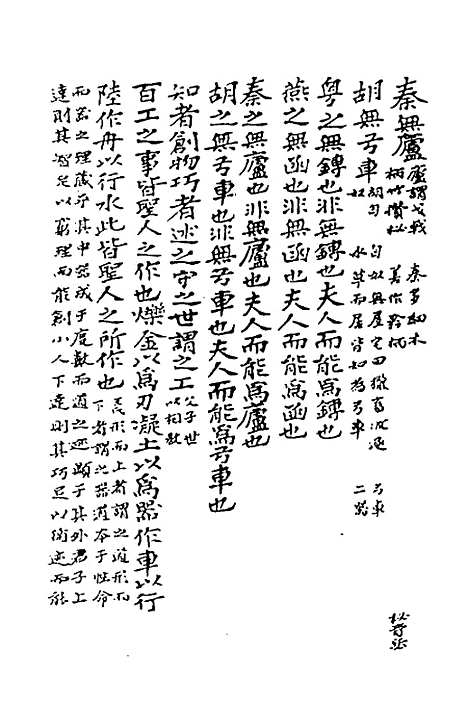 秦無廬廬謂戈戟柄竹欑柲
秦多細木善作矜柲
胡無弓車匈奴無屋宅田獵畜牧逐水草而居皆知為弓車
粵之無鎛也非無鎛也夫人而能為鎛也
燕之無函也非無函也夫人而能為函也
秦之無廬也非無廬也夫人而能為廬也
胡之無弓車也非無弓車也夫人而能為弓車也
知者創物巧者述之守之世謂之工父子世以相教
百工之事皆聖人之作也爍金以為刃凝土以為器作車以行
陸作舟以行水此皆聖人之所作也形而上者謂之道形而下者謂之器道本于性命
而器之理藏乎其中器成于度數而道之迹顯于其外君子上
達則其智足以窮理而能創小人下達則其巧足以循迹而能